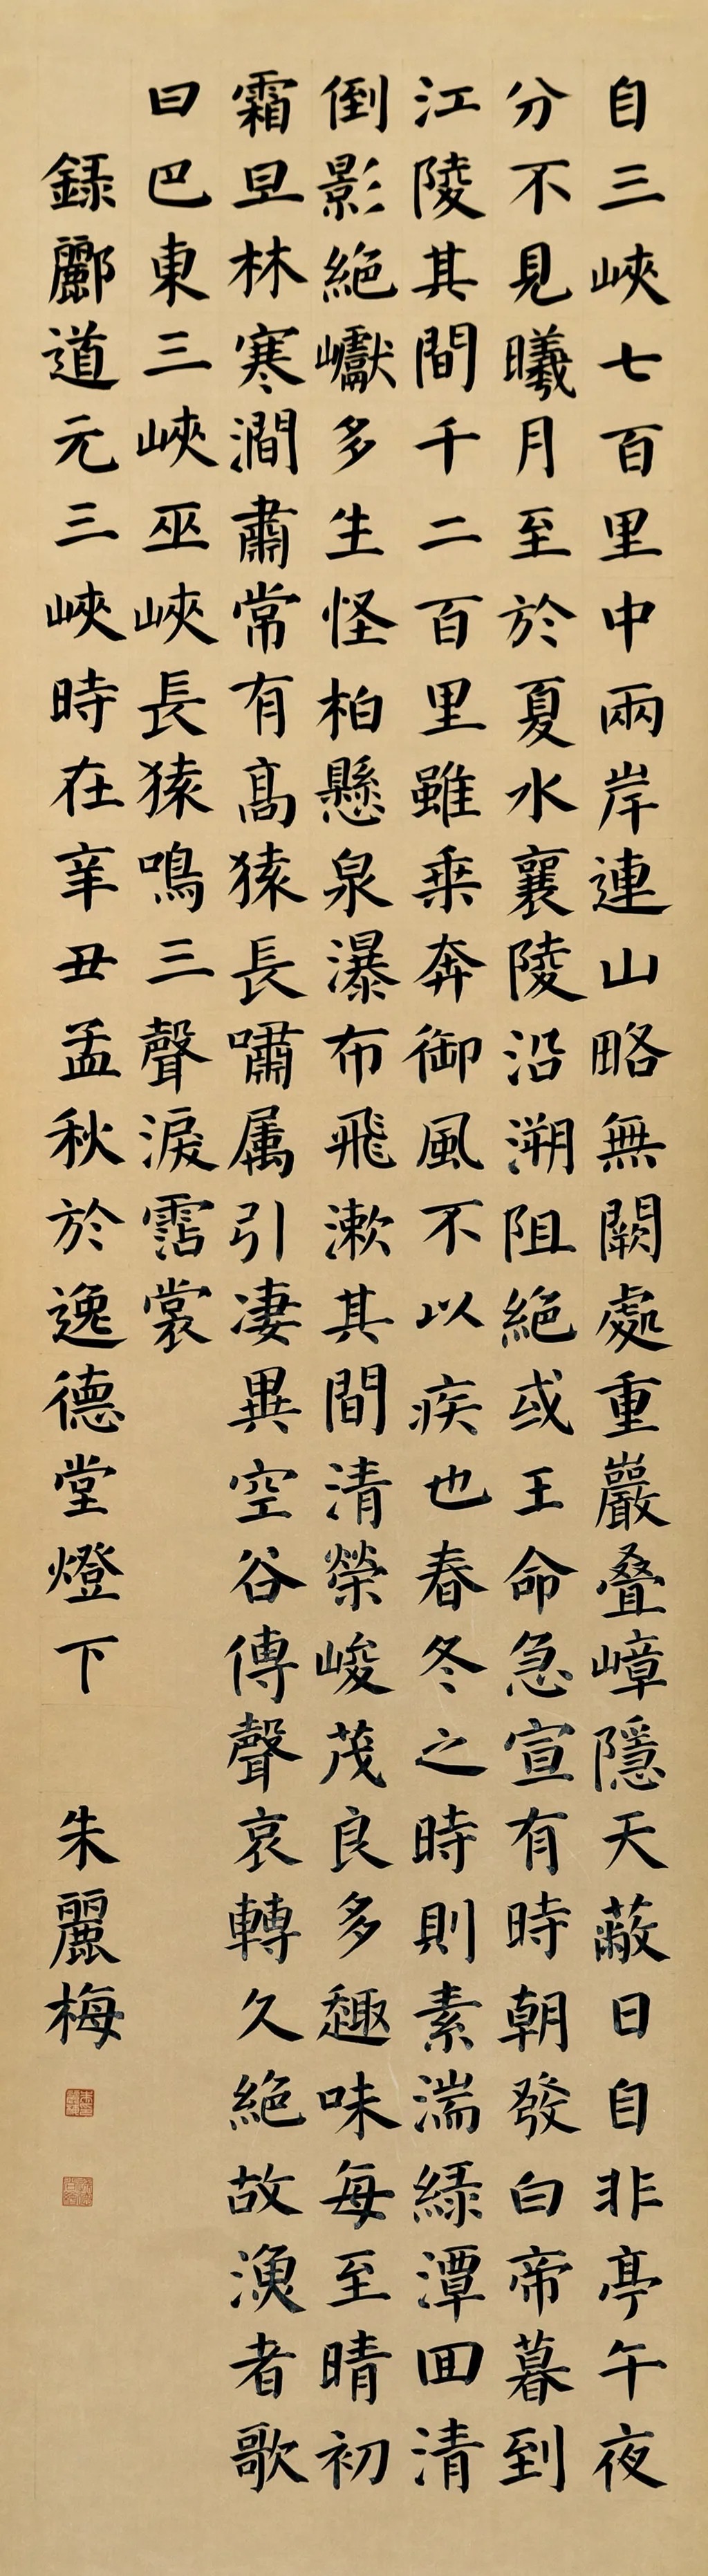 自三峽七百里中兩岸連山略無闕處重巖疊嶂隱天蔽日自非亭午夜
分不見曦月至於夏水襄陵沿溯阻絕或王命急宣有時朝發白帝暮到
江陵其間千二百里雖乗奔御風不以疾也春冬之時則素湍綠潭回清
倒影絕巘多生怪柏懸泉瀑布飛漱其間清榮峻茂良多趣味每至晴初
霜旦林寒澗肅常有高猿長嘯属引淒異空谷傳聲哀轉久絕故漁者歌
曰巴東三峽巫峽長猿鳴三聲淚霑裳
錄酈道元三峽時在辛丑孟秋於逸德堂燈下 朱麗梅